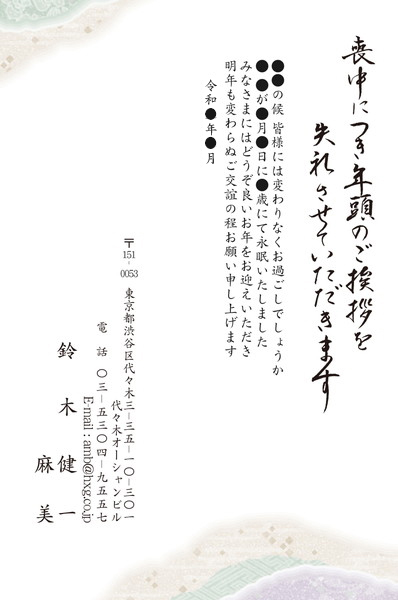 喪中につき年頭のご挨拶を
失礼させていただきます
●●の候 皆様には変わりなくお過ごしでしょうか
●●が●月●日に●歳にて永眠いたしました
みなさまにはどうぞ良いお年をお迎えいただき
明年も変わらぬご交誼の程お願い申し上げます
令和●年●月
〒151-0053 東京都渋谷区代々木三-三五-一〇-三〇一
代々木オーシャンビル
電話 〇三-五三〇四-九五五七
E-mail:amb@hxg.co.jp
鈴木健一
麻美